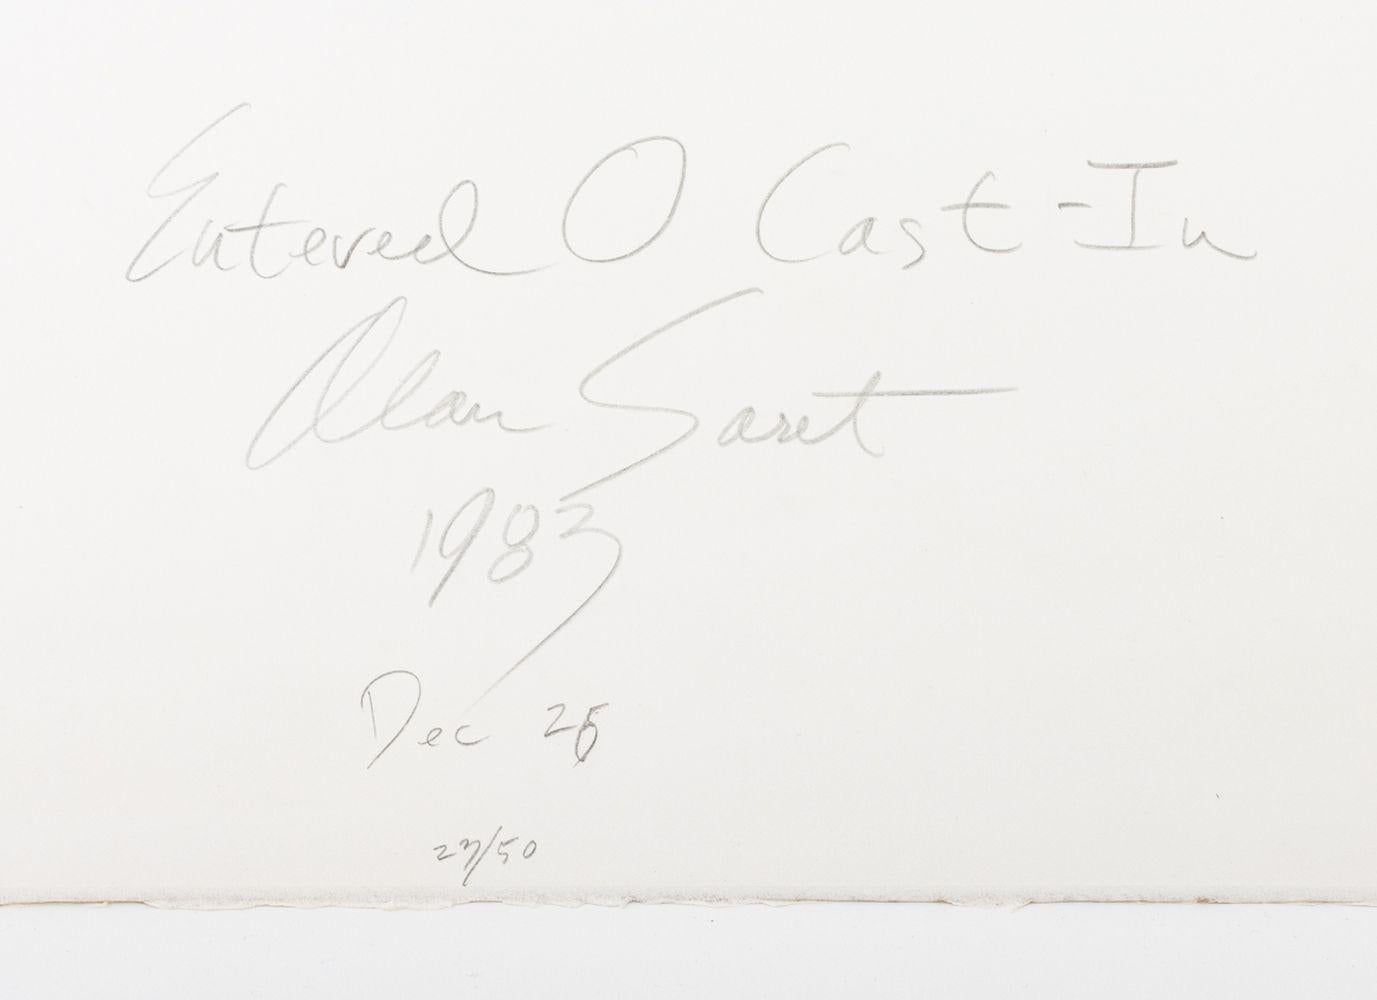 Entered O Cast-In
Alan Saret
1983
Dec
27/50